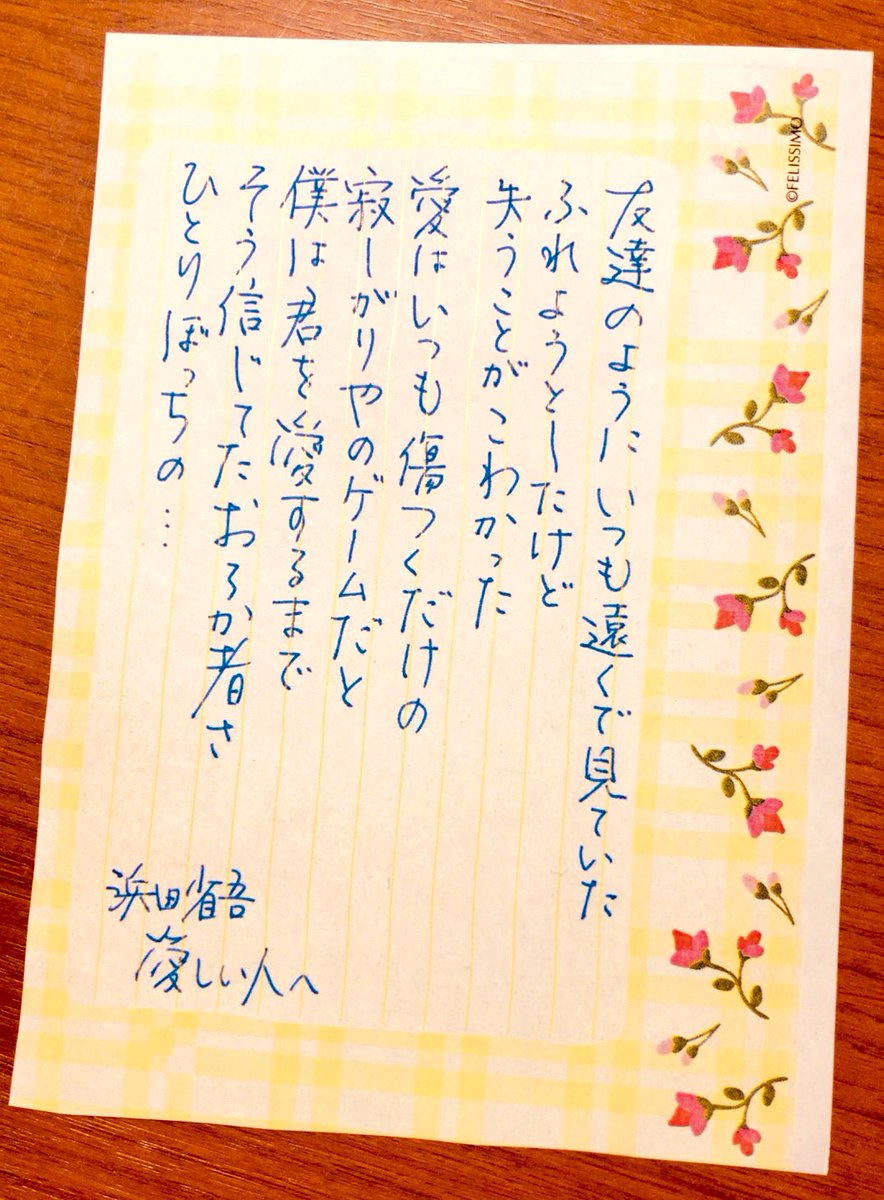 友達のようにいつも遠くで見ていた
ふれようとしたけど
失うことがこわかった
愛はいつも傷つくだけの
寂しがりやのゲームだと
僕は君を愛するまで
そう信じてたおろか者さ
ひとりぼっちの…
浜田省吾
愛しい人へ
©FELISSIMO